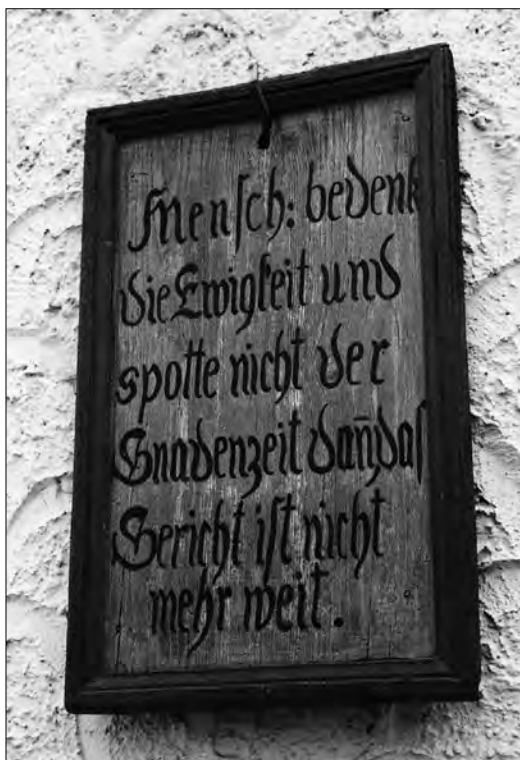 Menſch: bedenk
die Ewigkeit und
spotte nicht der
Gnadenzeit dan̄ daſ
Gericht iſt nicht
mehr weit.